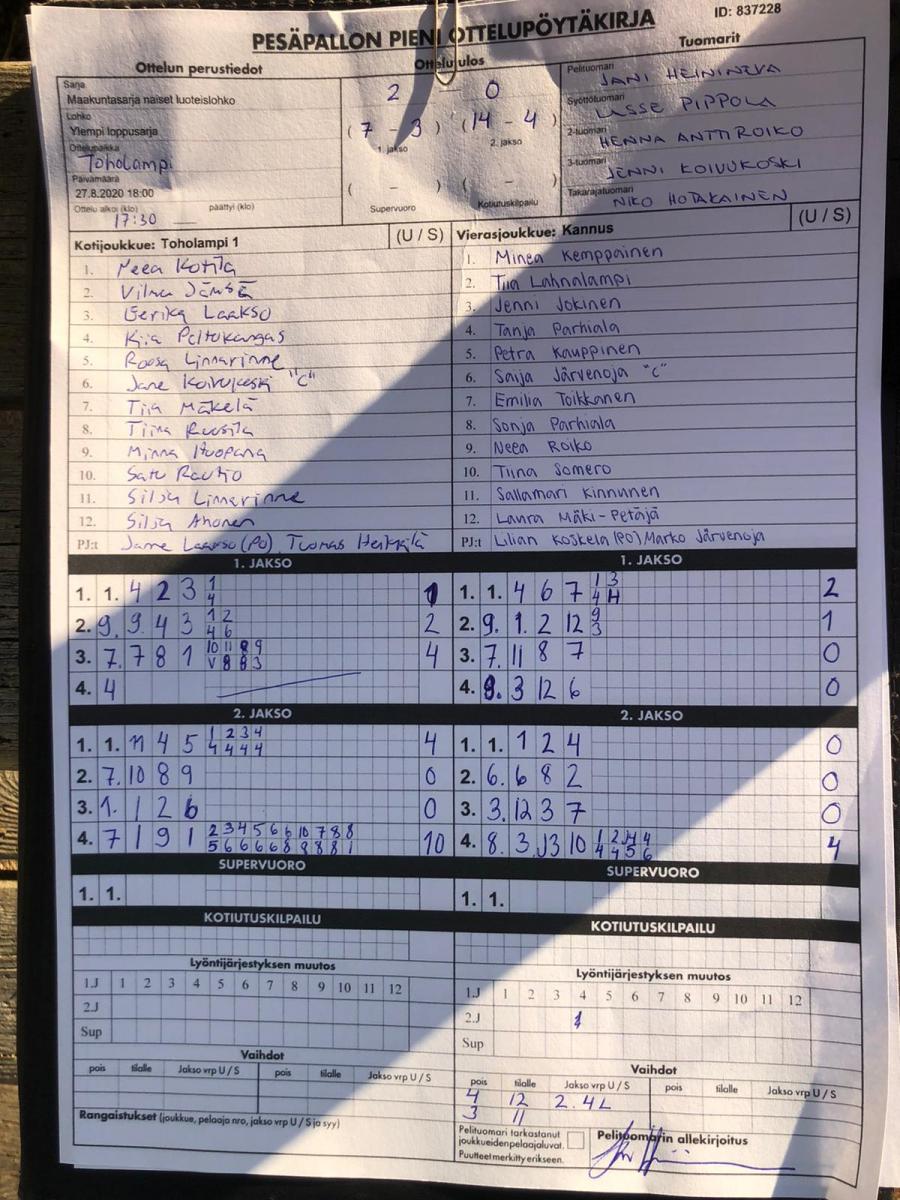 PESÄPALLON PIENI OTTELUPÖYTÄKIRJA
ID: 837228
Ottelun perustiedot
Sarja
Maakuntasarja naiset luoteislohko
Lohko
Ylempi loppusarja
Ottelupaikka
Toholampi
Päivämäärä
27.8.2020 18:00
Ottelu alkoi (klo) päättyi (klo)
17:30
Ottelutulos
2 - 0
(7 - 3) (14 - 4)
1. jakso 2. jakso
( - ) ( - )
Supervuoro Kotiutuskilpailu
Tuomarit
Pelituomari
JANI HEININEVA
Syöttötuomari
LASSE PIPPOLA
2-tuomari
HENNA ANTTIROIKO
3-tuomari
JENNI KOIVUKOSKI
Takarajatuomari
NIKO HOTAKAINEN
Kotijoukkue: Toholampi 1 (U / S)
1. Neea Kotila
2. Vilma Jämsä
3. Eerika Laakso
4. Kiia Peltokangas
5. Roosa Linnarinne
6. Jane Koivukoski "C"
7. Tiia Mäkelä
8. Tiina Ruusila
9. Minna Huopana
10. Satu Rautio
11. Silja Linnarinne
12. Silja Ahonen
PJ:t Janne Laakso (PO), Tuomas Heikkilä
Vierasjoukkue: Kannus (U / S)
1. Minea Kemppainen
2. Tiia Lahnalampi
3. Jenni Jokinen
4. Tanja Parhiala
5. Petra Kauppinen
6. Saija Järvenoja "C"
7. Emilia Toikkanen
8. Sonja Parhiala
9. Neea Roiko
10. Tiina Somero
11. Sallamari Kinnunen
12. Laura Mäki-Petäjä
PJ:t Lilian Koskela (PO) Marko Järvenoja
1. JAKSO
1. 1. 4 2 3 1 1
4
2. 9. 9 4 3 1 2 2
4 6
3. 7. 7 8 1 10 11 8 9 4
V 8 8 3
4. 4
2. JAKSO
1. 1. 11 4 5 1 2 3 4 4
4 4 4 4
2. 7. 10 8 9 0
3. 1. 1 2 6 0
4. 7 1 9 1 2 3 4 5 6 6 10 7 8 8 10
5 6 6 6 6 8 9 8 8 1
SUPERVUORO
1. 1.
KOTIUTUSKILPAILU
Lyöntijärjestyksen muutos
1.J 1 2 3 4 5 6 7 8 9 10 11 12
2.J
Sup
Vaihdot
pois tilalle Jakso vrp U / S pois tilalle Jakso vrp U / S
Rangaistukset (joukkue, pelaaja nro, jakso vrp U / S ja syy)
1. JAKSO
1. 1. 4 6 7 1 3 2
4 4
2. 9. 1. 2 12 9 1
3
3. 7. 11 8 7 0
4. 9. 3 12 6 0
2. JAKSO
1. 1. 1 2 4 0
2. 6. 6 8 2 0
3. 3. 12 3 7 0
4. 8. 3 10 4
4 4 5 6
SUPERVUORO
1. 1.
KOTIUTUSKILPAILU
Lyöntijärjestyksen muutos
1.J 1 2 3 4 5 6 7 8 9 10 11 12
2.J
Sup
Vaihdot
pois tilalle Jakso vrp U / S pois tilalle Jakso vrp U / S
4 12 2. 4L
3 11
Pelituomari tarkastanut
joukkueiden pelaajaluvat.
Puutteet merkitty erikseen.
Pelituomarin allekirjoitus